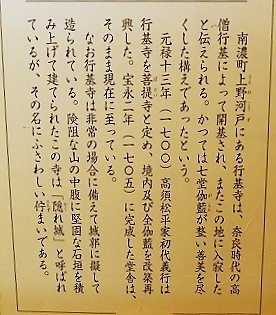 南濃町上野河戸にある行基寺は、奈良時代の高
僧行基によって開基され、またこの地に入寂した
と伝えられる。かつては七堂伽藍が整い善美を尽
くした構えであったという。
元禄十三年（一七〇〇）高須松平家初代義行は
行基寺を菩提寺と定め、境内及び全伽藍を改築再
興した。宝永二年（一七〇五）に完成した堂舎は、
そのまま現在に至っている。
なお行基寺は非常の場合に備えて城郭に擬して
造られている。険阻な山の中腹に堅固な石垣を積
み上げて建てられたこの寺は「隠れ城」と呼ばれ
ているが、その名にふさわしい佇まいである。